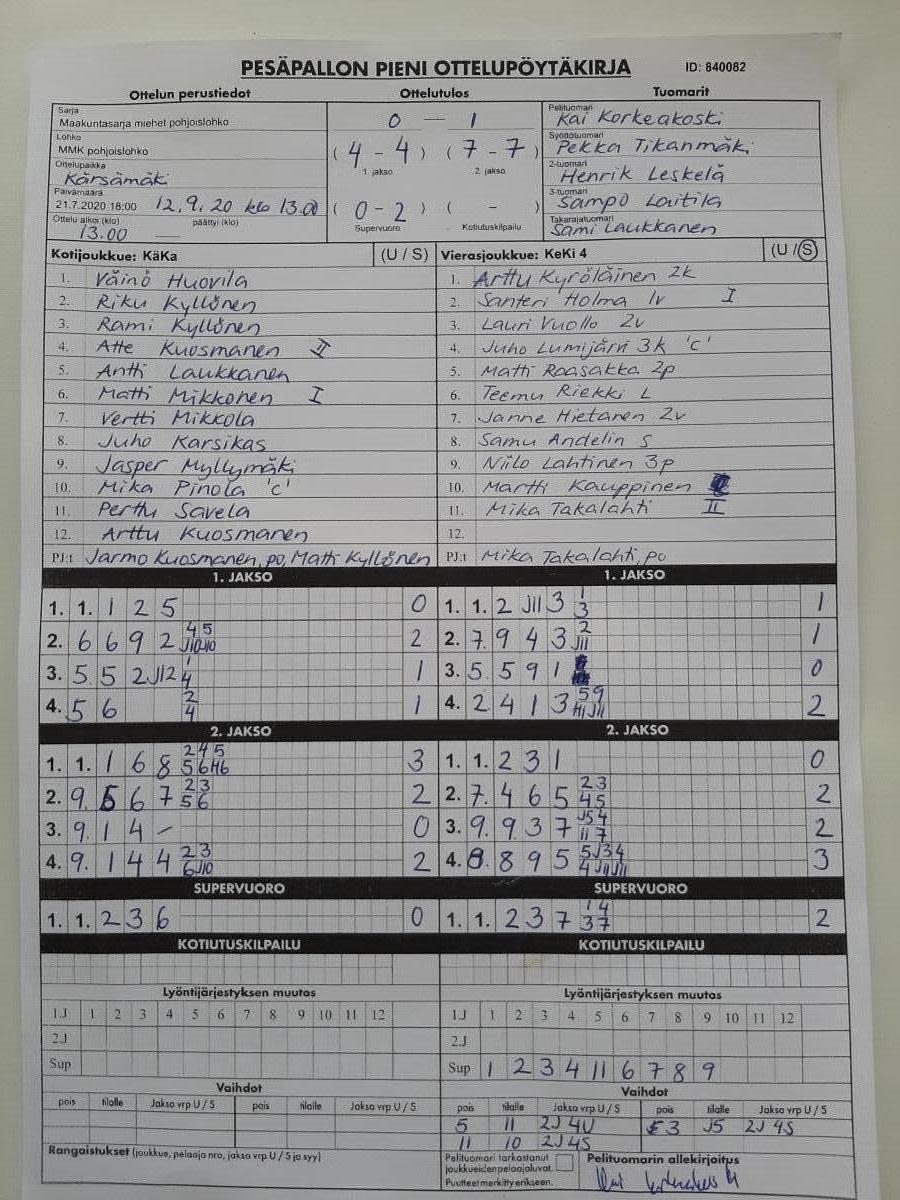 PESÄPALLON PIENI OTTELUPÖYTÄKIRJA ID: 840082
Ottelun perustiedot Ottelutulos Tuomarit
Sarja
Maakuntasarja miehet pohjoislohko
Lohko
MMK pohjoislohko
Ottelupaikka
Kärsämäki
Päivämäärä
21.7.2020 18:00 12.9.20 klo 13.00
Ottelu alkoi (klo) päättyi (klo)
13.00
0 — 1
(4 - 4) (7 - 7)
1. jakso 2. jakso
(0 - 2) ( - )
Supervuoro Kotiutuskilpailu
Pelituomari
Kai Korkeakoski
Syöttötuomari
Pekka Tikanmäki
2-tuomari
Henrik Leskelä
3-tuomari
Sampo Lautila
Takarajatuomari
Sami Laukkanen
Kotijoukkue: KäKa (U / S)
1. Väinö Huovila
2. Riku Kyllönen
3. Rami Kyllönen
4. Atte Kuosmanen II
5. Antti Laukkanen
6. Matti Mikkonen I
7. Vertti Mikkola
8. Juho Karsikas
9. Jasper Myllymäki
10. Mika Pinola 'c'
11. Perttu Savela
12. Arttu Kuosmanen
PJ:t Jarmo Kuosmanen, po, Matti Kyllönen
Vierasjoukkue: KeKi 4 (U / S)
1. Arttu Kyröläinen 2k
2. Santeri Holma lv I
3. Lauri Vuollo 2v
4. Juho Lumijärvi 3k 'c'
5. Matti Raasakka 2p
6. Teemu Riekki L
7. Janne Hietanen 2v
8. Samu Andelin S
9. Niilo Lahtinen 3p
10. Martti Kauppinen
11. Mika Takalahti II
12.
PJ:t Mika Takalahti, po
1. JAKSO
1. 1. 1 2 5 0
2. 6 6 9 2 4 5 J10 J10 2
3. 5 5 2 J12 1 4 1
4. 5 6 2 4 1
2. JAKSO
1. 1. 1 6 8 2 4 5 5 6 H6 3
2. 9. 5 6 7 2 3 5 6 2
3. 9. 1 4 - 0
4. 9. 1 4 4 2 3 6 J10 2
SUPERVUORO
1. 1. 2 3 6 0
KOTIUTUSKILPAILU
1. JAKSO
1. 1. 2 J11 3 1 3 1
2. 7. 9 4 3 2 J11 1
3. 5 5 9 1 0
4. 2 4 1 3 5 9 H1 J11 2
2. JAKSO
1. 1. 2 3 1 0
2. 7. 4 6 5 2 3 4 5 2
3. 9. 9 3 7 J5 4 11 7 2
4. 8. 8 9 5 5 J3 4 4 J11 J11 3
SUPERVUORO
1. 1. 2 3 7 1 4 3 7 2
KOTIUTUSKILPAILU
Lyöntijärjestyksen muutos
1.J 1 2 3 4 5 6 7 8 9 10 11 12
2.J
Sup
Lyöntijärjestyksen muutos
1.J 1 2 3 4 5 6 7 8 9 10 11 12
2.J
Sup 1 2 3 4 11 6 7 8 9
Vaihdot
pois tilalle Jakso vrp U / S pois tilalle Jakso vrp U / S
Rangaistukset (joukkue, pelaaja nro, jakso vrp U / S ja syy)
Vaihdot
pois tilalle Jakso vrp U / S pois tilalle Jakso vrp U / S
5 11 2J 4U 3 J5 2J 4S
11 10 2J 4S
Pelituomari tarkastanut
joukkueiden pelaajaluvat.
Puutteet merkitty erikseen.
Pelituomarin allekirjoitus